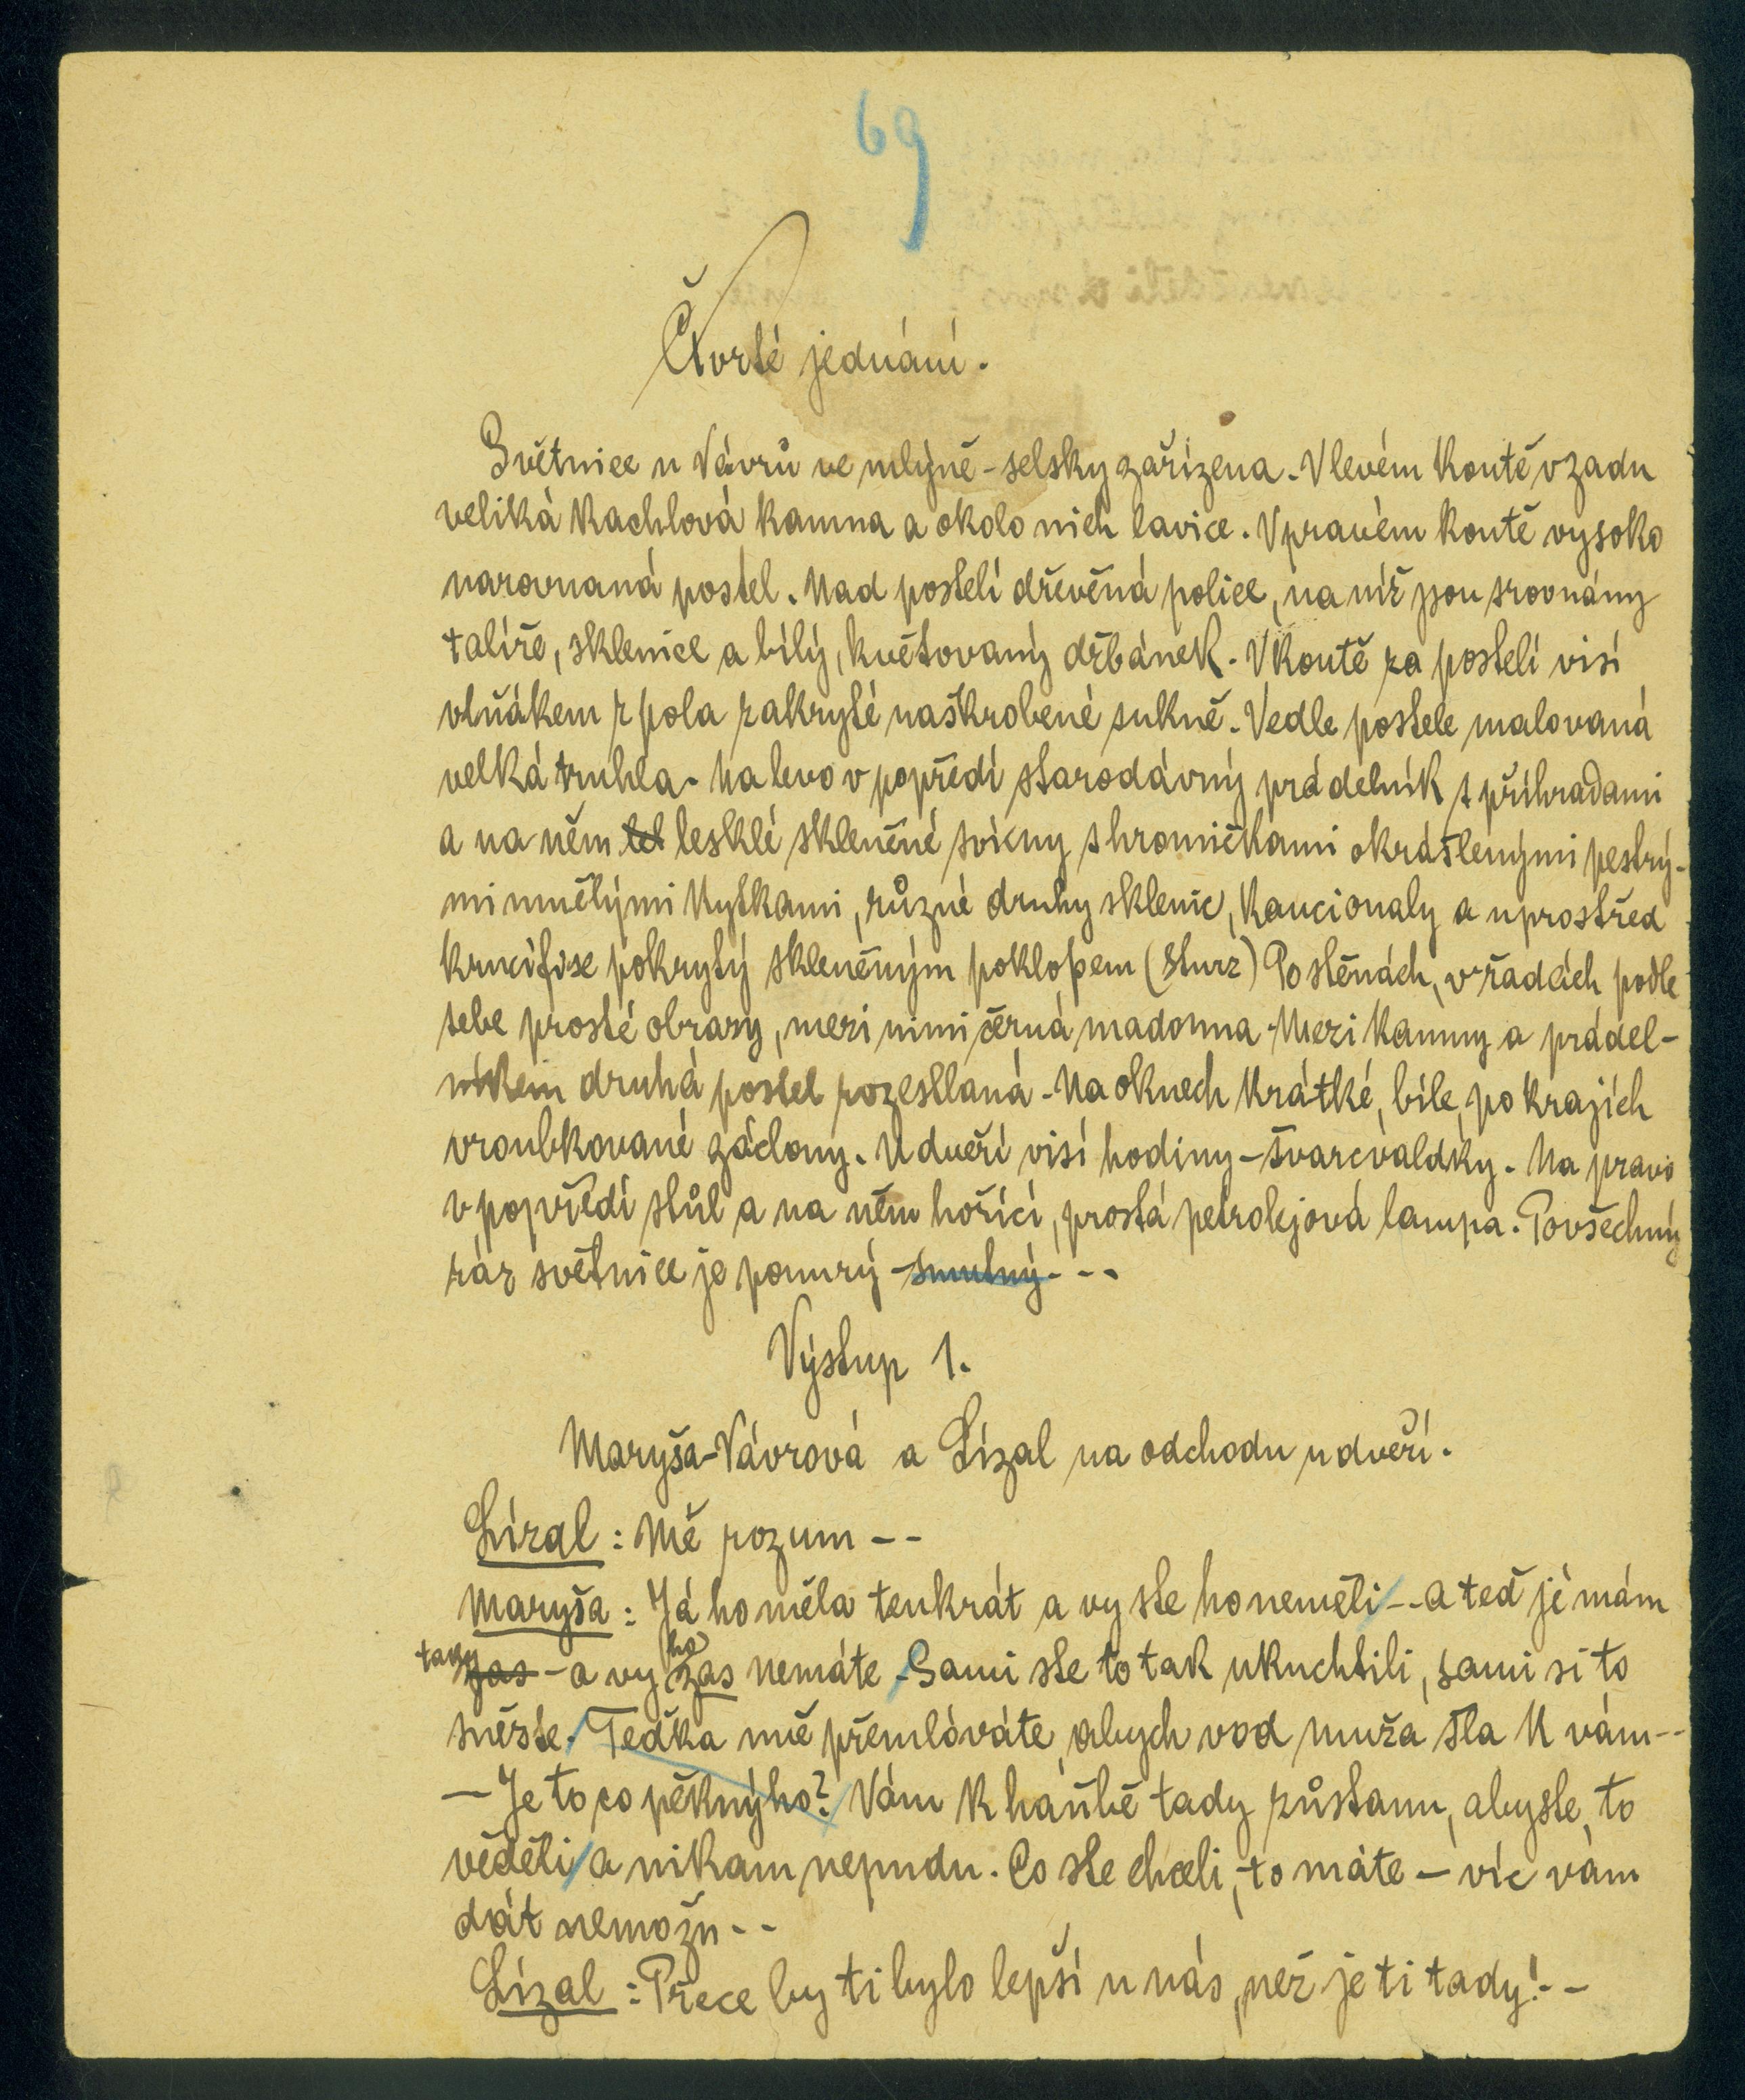 69
Čtvrté jednání.
Světnice u Vávrů ve mlýně - selsky zařízena. V levém koutě vzadu
veliká kachlová kamna a okolo nich lavice. V pravém koutě vysoko
narovnaná postel. Nad postelí dřevěná police, na níž jsou srovnány
talíře, sklenice a bílý, květovaný džbánek. V koutě za postelí visí
vlňákem z pola zakryté naškrobené sukně. Vedle postele malovaná
velká truhla. Na levo v popředí starodávný prádelník s příhradami
a na něm lesklé skleněné svícny s hromičkami okrášlenými pestrý-
mi umělými kytkami, různé druhy sklenic, kancionaly a uprostřed
krucifix pokrytý skleněným poklopem (Sturz) Po stěnách, v řadách podle
sebe prosté obrazy, mezi nimi černá madonna. Mezi kamny a prádel-
níkem druhá postel rozestlaná. Na oknech krátké, bíle, po krajích
vroubkované záclony. U dveří visí hodiny - švarcvaldky. Na pravo
v popředí stůl a na něm hořící, prostá petrolejová lampa. Povšechný
ráz světnice je ponurý - smutný - - -
Výstup 1.
Maryša-Vávrová a Lízal na odchodu u dveří.
Lízal: Mě rozum - -
Maryša: Já ho měla tenkrát a vy ste ho neměli - - a teď jé mám
taky zas - a vy ho zas nemáte. Sami ste to tak ukuchtili, sami si to
snězte. Teďka mě přemlóváte, abych vod muža šla k vám - -
- Je to co pěknýho? Vám k haňbě tady zůstanu, abyste, to
věděli a nikam nepudu. Co ste chceli, to máte - víc vám
dát nemožu - -
Lízal: Přece by ti bylo lepší u nás, než je ti tady! - -